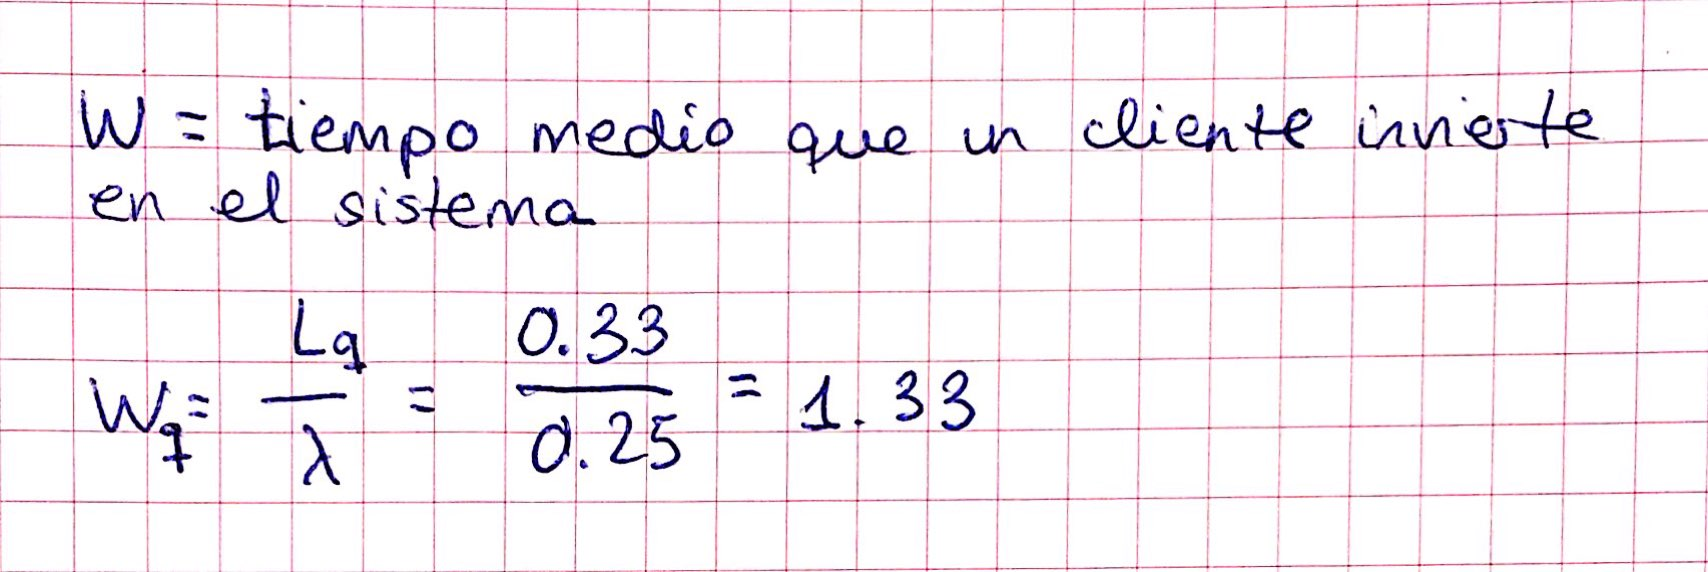 W = tiempo medio que un cliente invierte
en el sistema
Wq = Lq / λ = 0.33 / 0.25 = 1.33